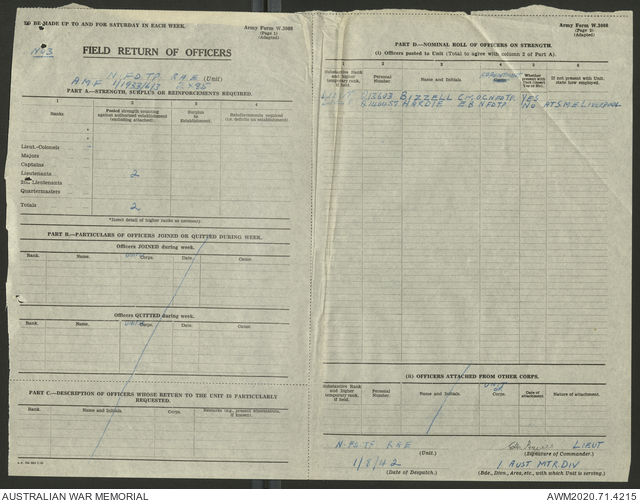 TO BE MADE UP TO AND FOR SATURDAY IN EACH WEEK.
Army Form W.3008
(Page 1)
(Adapted)
No 3
FIELD RETURN OF OFFICERS
N. FD. TP. R.A.E (Unit)
A.M.F 1/1933/6/3 2 x 95
PART A.—STRENGTH, SURPLUS OR REINFORCEMENTS REQUIRED.
1 2 3 4
Ranks Posted strength counting against authorised establishment (excluding attached). Surplus to Establishment. Reinforcements required (i.e. deficits on establishment)
Lieut.-Colonels
Majors
Captains
Lieutenants 2
2nd. Lieutenants
Quartermasters
Totals 2
*Insert detail of higher ranks as necessary.
PART B.—PARTICULARS OF OFFICERS JOINED OR QUITTED DURING WEEK.
Officers JOINED during week.
Rank. Name. Corps. Date. Cause.
Officers QUITTED during week.
Rank. Name. Corps. Date. Cause.
PART C.—DESCRIPTION OF OFFICERS WHOSE RETURN TO THE UNIT IS PARTICULARLY REQUESTED.
Rank. Name and Initials. Corps. Remarks (e.g., present whereabouts, if known).
Army Form W.3008
(Page 2)
(Adapted)
PART D.—NOMINAL ROLL OF OFFICERS ON STRENGTH.
(i) Officers posted to Unit (Total to agree with column 2 of Part A).
1 2 3 4 5 6
Substantive Rank and higher temporary rank, if held. Personal Number. Name and Initials. Whether present with Unit (insert Yes or No). If not present with Unit, state how employed.
BIZZELL C.M. O.C. N FD TP YES
HARDIE E B N FD TP NO AT S.M.E LIVERPOOL
(ii) OFFICERS ATTACHED FROM OTHER CORPS.
1 2 3 4 5 6
Substantive Rank and higher temporary rank, if held. Personal Number. Name and Initials. Corps. Date of attachment. Nature of attachment.
N. FD TP RAE (Unit.)
LIEUT
(Signature of Commander.)
1/8/42
(Date of Despatch.)
1 AUST MTR DIV
(Bde., Divn., Area, etc., with which Unit is serving.)
AUSTRALIAN WAR MEMORIAL
AWM2020.71.4215